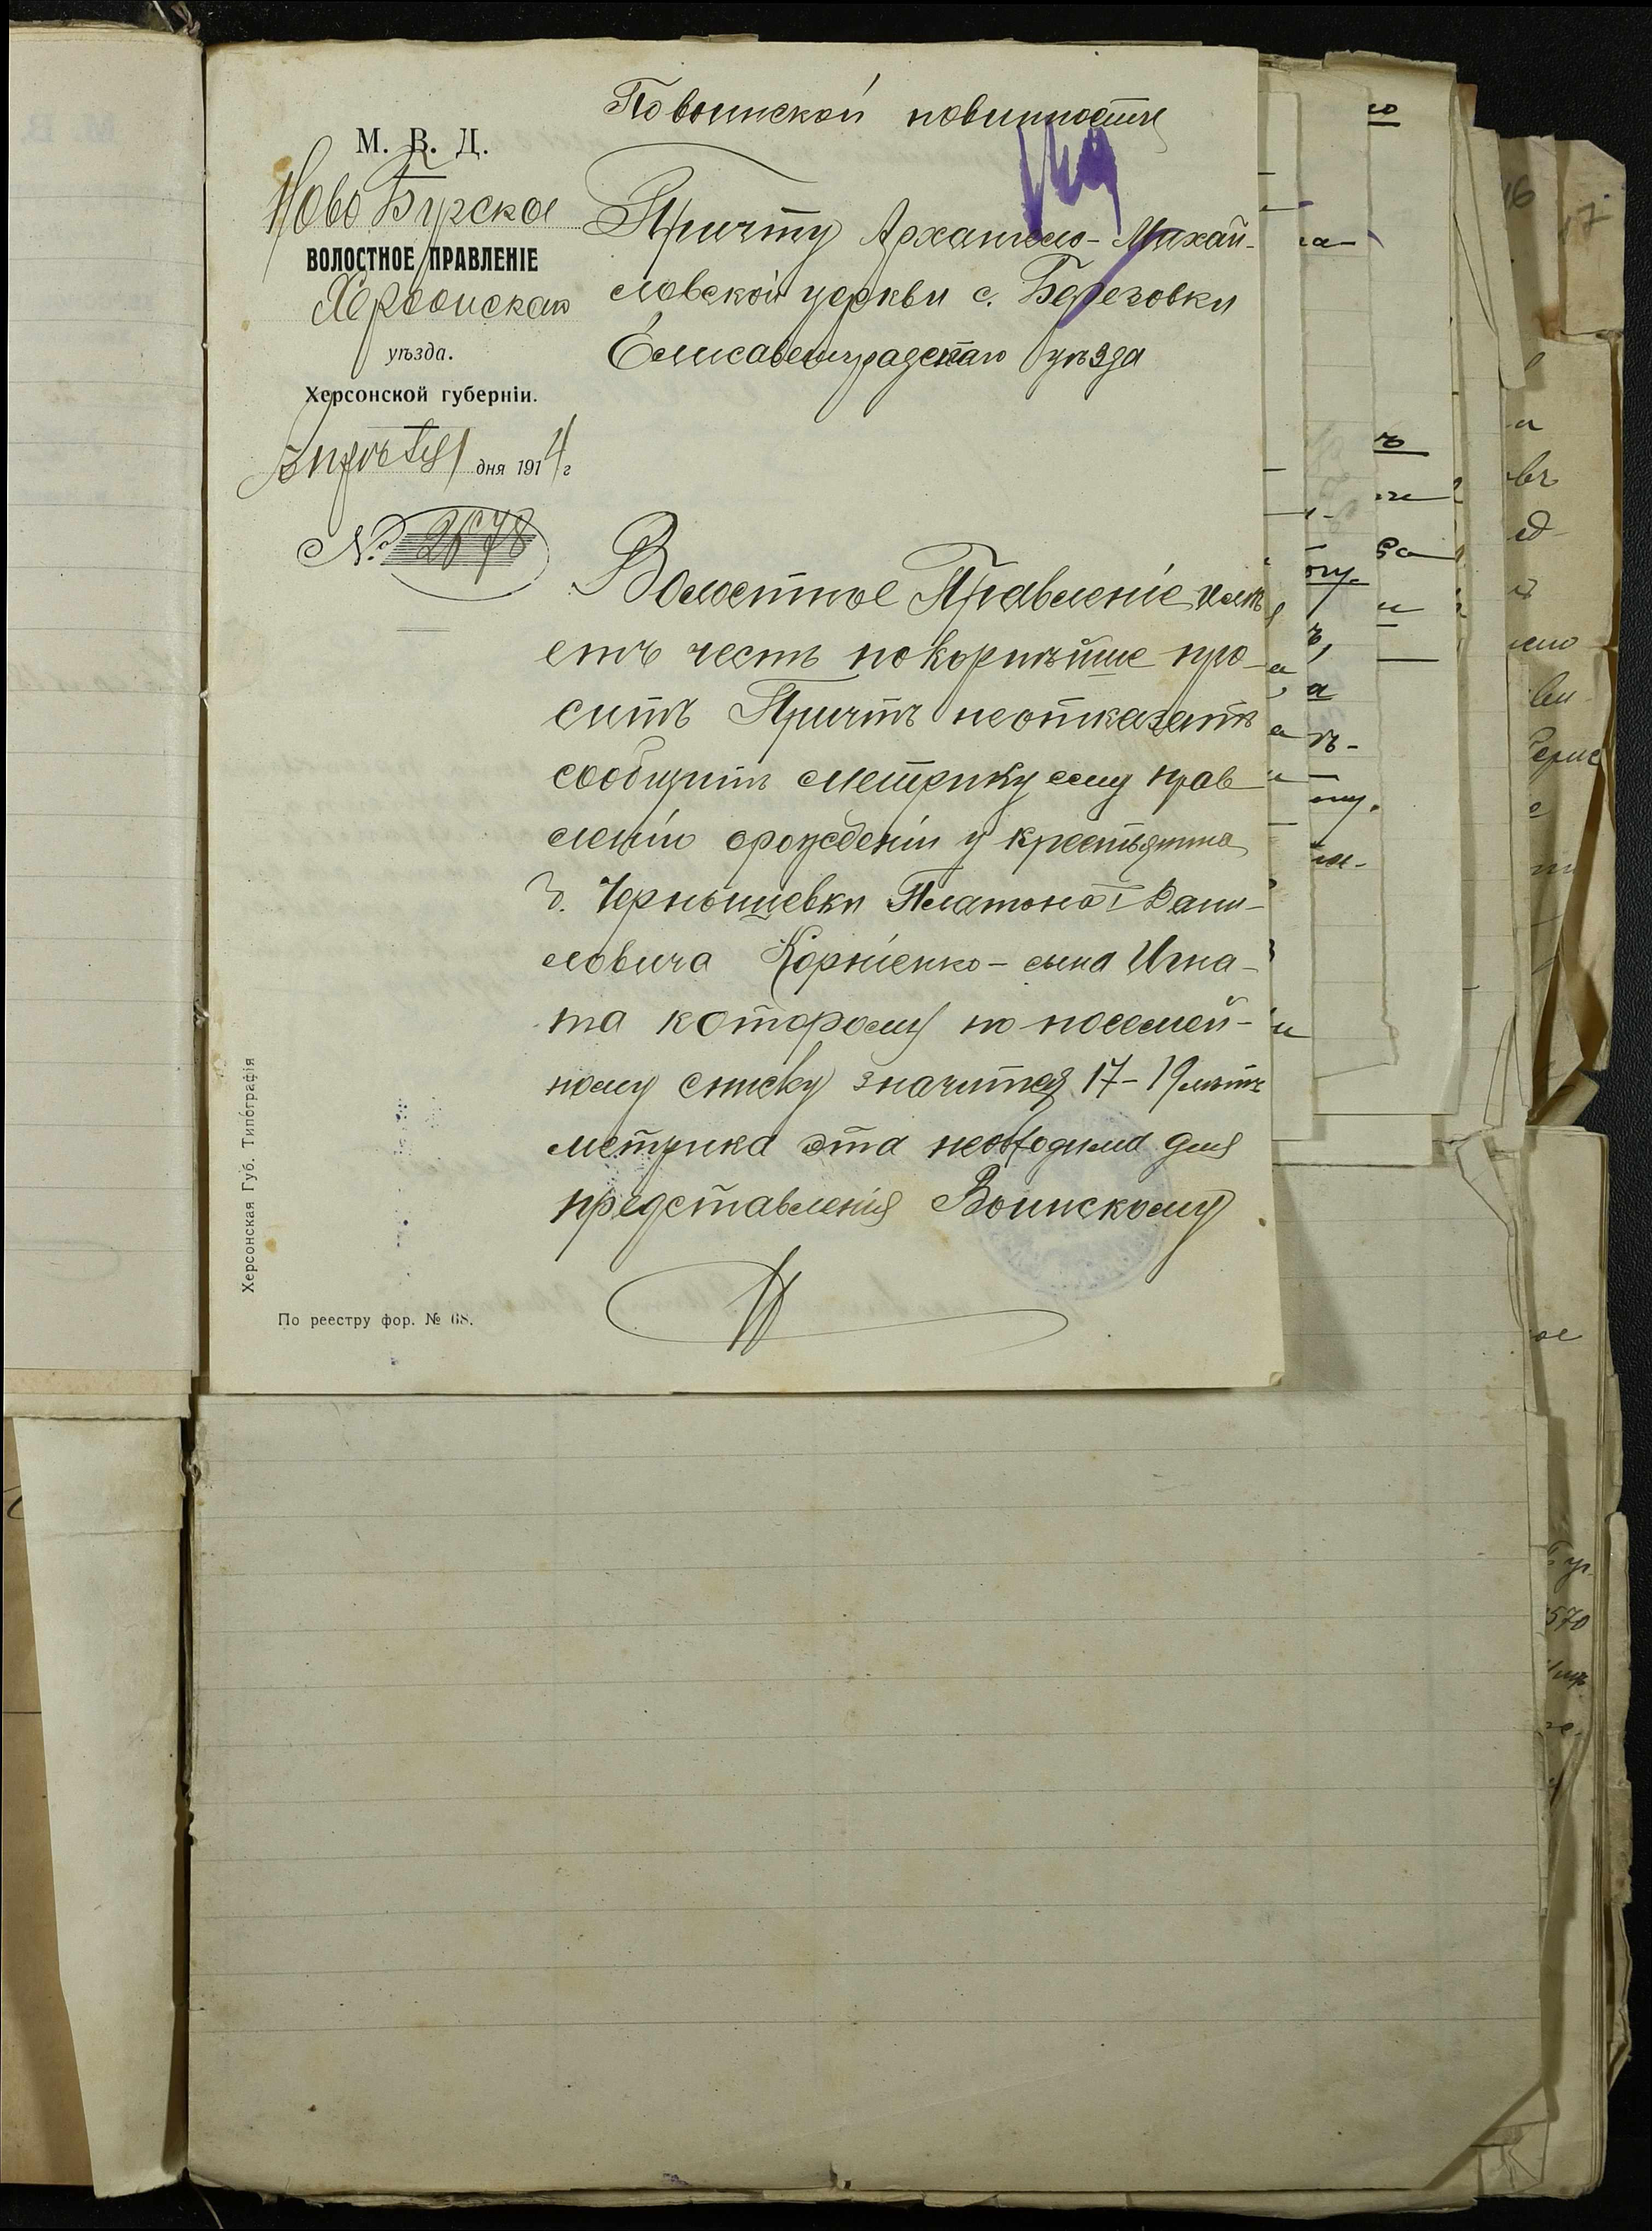 По воинской повинности
М. В. Д.
Ново Бугское
ВОЛОСТНОЕ ПРАВЛЕНІЕ
Херсонскаго
уѣзда.
Херсонской губерніи.
дня 1914 г
№ 2678
Причту Архангело-Михай-
ловской церкви с. Березовки
Елисаветградскаго уѣзда
Волостное Правленіе имѣ
етъ честь покорнѣйше про-
ситъ Причтъ неотказать
сообщить метрику сему прав
ленію орожденіи у крестьянина
д. Чернышевки Платона Дани-
ловича Корніенко - сына Игна-
та которому по посемей-
ному списку значится 17-19 лѣтъ
метрика эта необходима для
представленія Воинскому
Херсонская Губ. Типографія
По реестру фор. № 68.